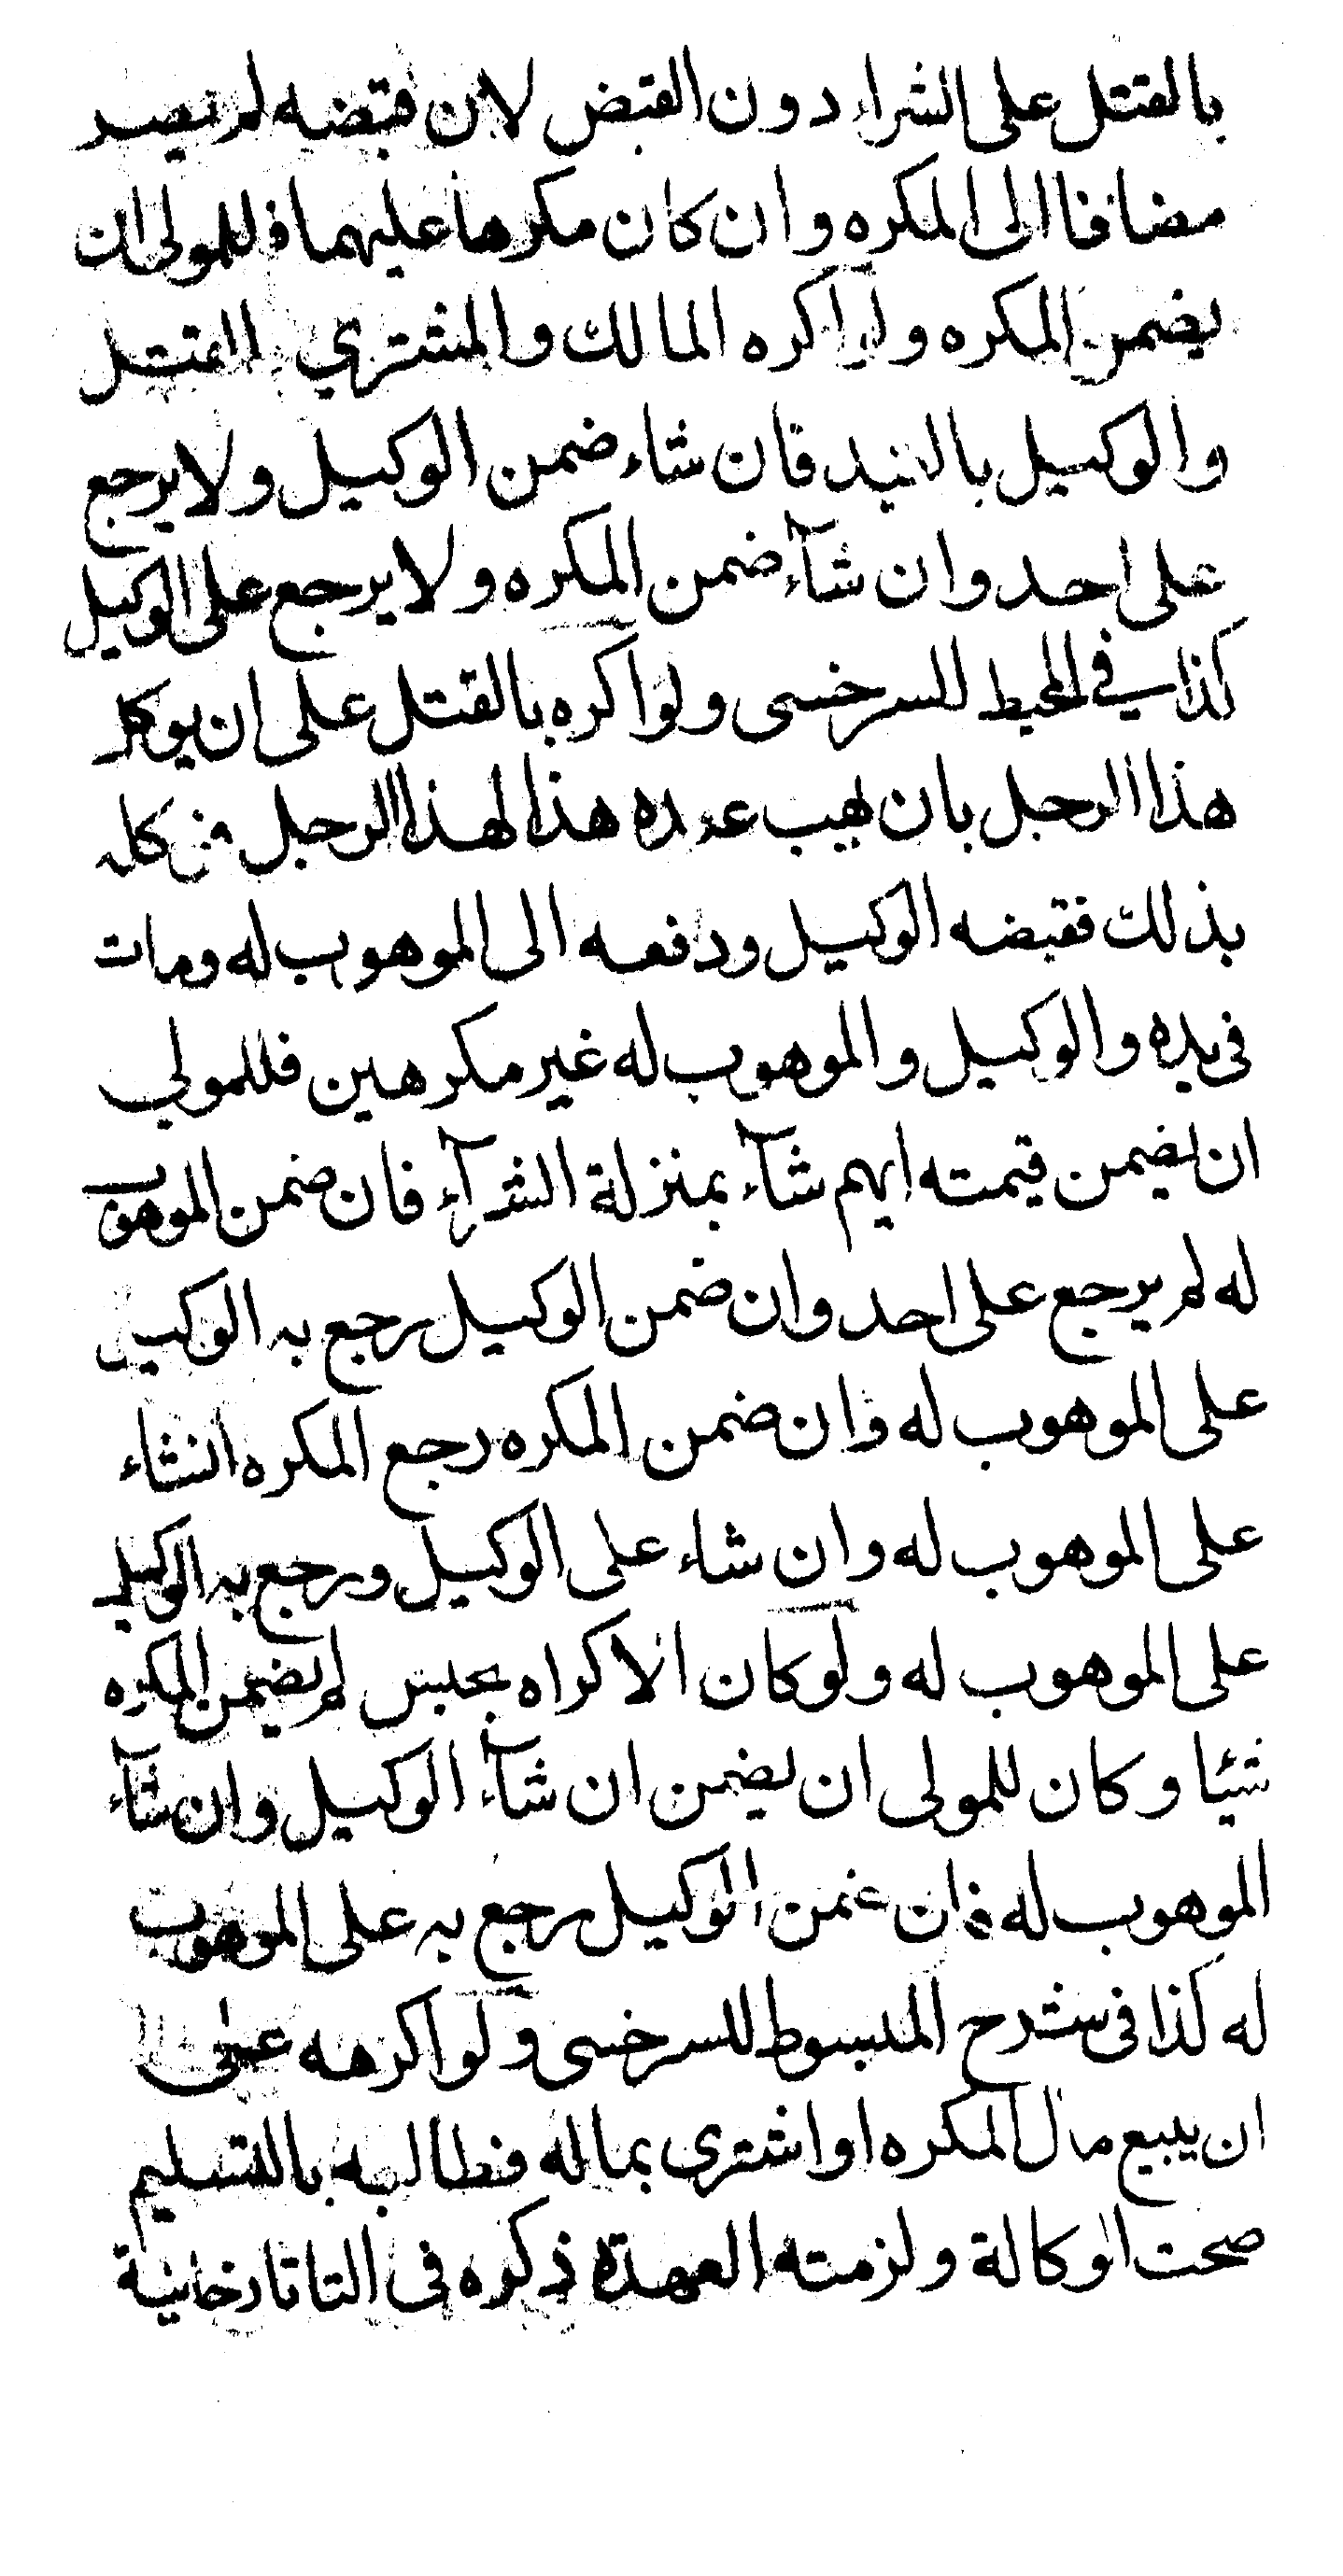 بالقتل على الشراء دون القبض لان قبضه لم يصر
مضافا الى المكره وان كان مكرها عليهما فللمولى ان
يضمن المكره ولو اكره المالك والمشتري بالقتل
والوكيل بالقيد فان شاء ضمن الوكيل ولا يرجع
على احد وان شآء ضمن المكره ولا يرجع على الوكيل
كذا في المحيط للسرخسى ولو اكره بالقتل على ان يوكل
هذا الرجل بان يهب عبده هذا لهذا الرجل فوكله
بذلك فقبضه الوكيل ودفعه الى الموهوب له ومات
فى يده والوكيل والموهوب له غير مكرهين فللمولى
ان يضمن قيمته ايهم شآء بمنزلة الشرآء فان ضمن الموهوب
له لم يرجع على احد وان ضمن الوكيل رجع به الوكيل
على الموهوب له وان ضمن المكره رجع المكره ان شاء
على الموهوب له وان شاء على الوكيل ورجع به الوكيل
على الموهوب له ولو كان الاكراه بحبس لم يضمن المكره
شيئا وكان للمولى ان يضمن ان شآء الوكيل وان شآء
الموهوب له فان ضمن الوكيل رجع به على الموهوب
له كذا فى شرح المبسوط للسرخسى ولو اكرهه على
ان يبيع مال المكره او اشترى بماله فطالبه بالتسليم
صحت الوكالة ولزمته العهدة ذكره فى التاتارخانية